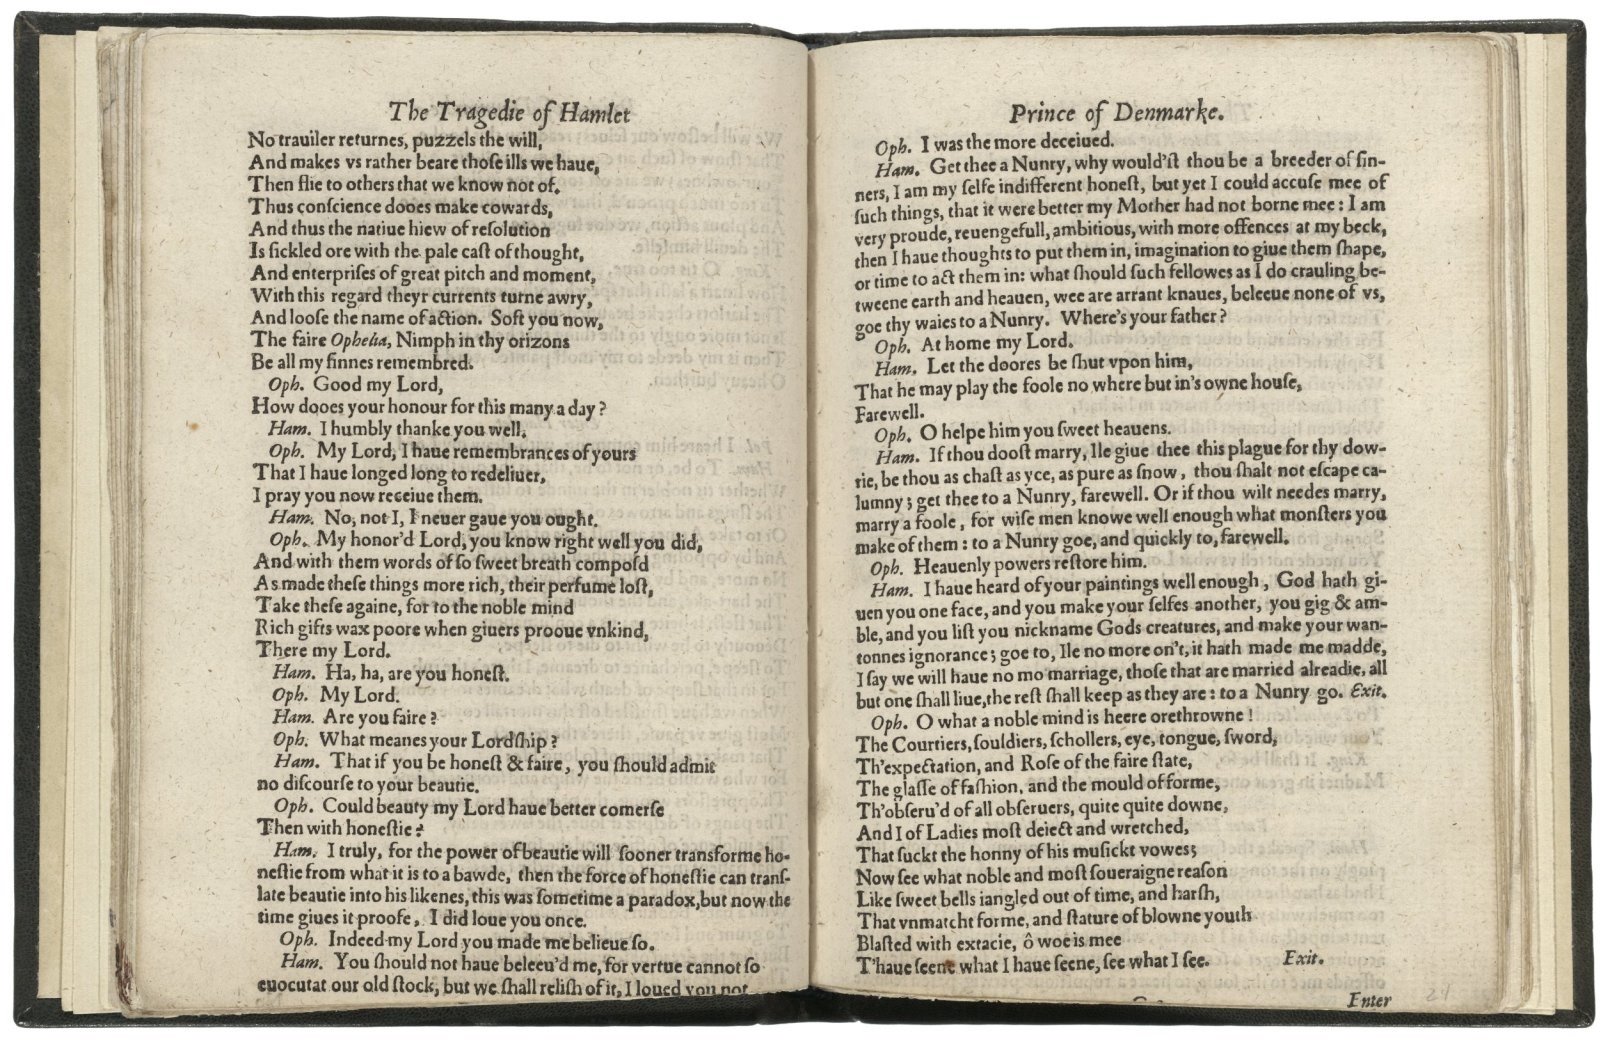 The Tragedie of Hamlet
No trauiler returnes, puzzels the will,
And makes vs rather beare thoſe ills we haue,
Then flie to others that we know not of.
Thus conſcience dooes make cowards,
And thus the natiue hiew of reſolution
Is ſickled ore with the pale caſt of thought,
And enterpriſes of great pitch and moment,
With this regard theyr currents turne awry,
And looſe the name of action. Soft you now,
The faire Ophelia, Nimph in thy orizons
Be all my ſinnes remembred.
Oph. Good my Lord,
How dooes your honour for this many a day?
Ham. I humbly thanke you well.
Oph. My Lord, I haue remembrances of yours
That I haue longed long to redeliuer,
I pray you now receiue them.
Ham. No, not I, I neuer gaue you ought.
Oph. My honor'd Lord, you know right well you did,
And with them words of ſo ſweet breath compoſd
As made theſe things more rich, their perfume loſt,
Take theſe againe, for to the noble mind
Rich gifts wax poore when giuers prooue vnkind,
There my Lord.
Ham. Ha, ha, are you honeſt.
Oph. My Lord.
Ham. Are you faire?
Oph. What meanes your Lordſhip?
Ham. That if you be honeſt & faire, you ſhould admit
no diſcourſe to your beautie.
Oph. Could beauty my Lord haue better comerſe
Then with honeſtie?
Ham. I truly, for the power of beautie will ſooner transforme ho-
neſtie from what it is to a bawde, then the force of honeſtie can tranſ-
late beautie into his likenes, this was ſometime a paradox, but now the
time giues it proofe, I did loue you once.
Oph. Indeed my Lord you made me belieue ſo.
Ham. You ſhould not haue beleeu'd me, for vertue cannot ſo
euocutat our old ſtock, but we ſhall reliſh of it, I loued you not.
Prince of Denmarke.
Oph. I was the more deceiued.
Ham. Get thee a Nunry, why would'ſt thou be a breeder of ſin-
ners, I am my ſelfe indifferent honeſt, but yet I could accuſe mee of
ſuch things, that it were better my Mother had not borne mee: I am
very proude, reuengefull, ambitious, with more offences at my beck,
then I haue thoughts to put them in, imagination to giue them ſhape,
or time to act them in: what ſhould ſuch fellowes as I do crauling be-
tweene earth and heauen, wee are arrant knaues, beleeue none of vs,
goe thy waies to a Nunry. Where's your father?
Oph. At home my Lord.
Ham. Let the doores be ſhut vpon him,
That he may play the foole no where but in's owne houſe,
Farewell.
Oph. O helpe him you ſweet heauens.
Ham. If thou dooſt marry, Ile giue thee this plague for thy dow-
rie, be thou as chaſt as yce, as pure as ſnow, thou ſhalt not eſcape ca-
lumny; get thee to a Nunry, farewell. Or if thou wilt needes marry,
marry a foole, for wiſe men knowe well enough what monſters you
make of them: to a Nunry goe, and quickly to, farewell.
Oph. Heauenly powers reſtore him.
Ham. I haue heard of your paintings well enough, God hath gi-
uen you one face, and you make your ſelfes another, you gig & am-
ble, and you liſt you nickname Gods creatures, and make your wan-
tonnes ignorance; goe to, Ile no more on't, it hath made me madde,
I ſay we will haue no mo marriage, thoſe that are married alreadie, all
but one ſhall liue, the reſt ſhall keep as they are: to a Nunry go. Exit.
Oph. O what a noble mind is heere orethrowne!
The Courtiers, ſouldiers, ſchollers, eye, tongue, ſword,
Th'expectation, and Roſe of the faire ſtate,
The glaſſe of faſhion, and the mould of forme,
Th'obſeru'd of all obſeruers, quite quite downe,
And I of Ladies moſt deiect and wretched,
That ſuckt the honny of his muſickt vowes;
Now ſee what noble and moſt ſoueraigne reaſon
Like ſweet bells iangled out of time, and harſh,
That vnmatcht forme, and ſtature of blowne youth
Blaſted with extacie, ô woe is mee
T'haue ſeene what I haue ſeene, ſee what I ſee. Exit.
Enter